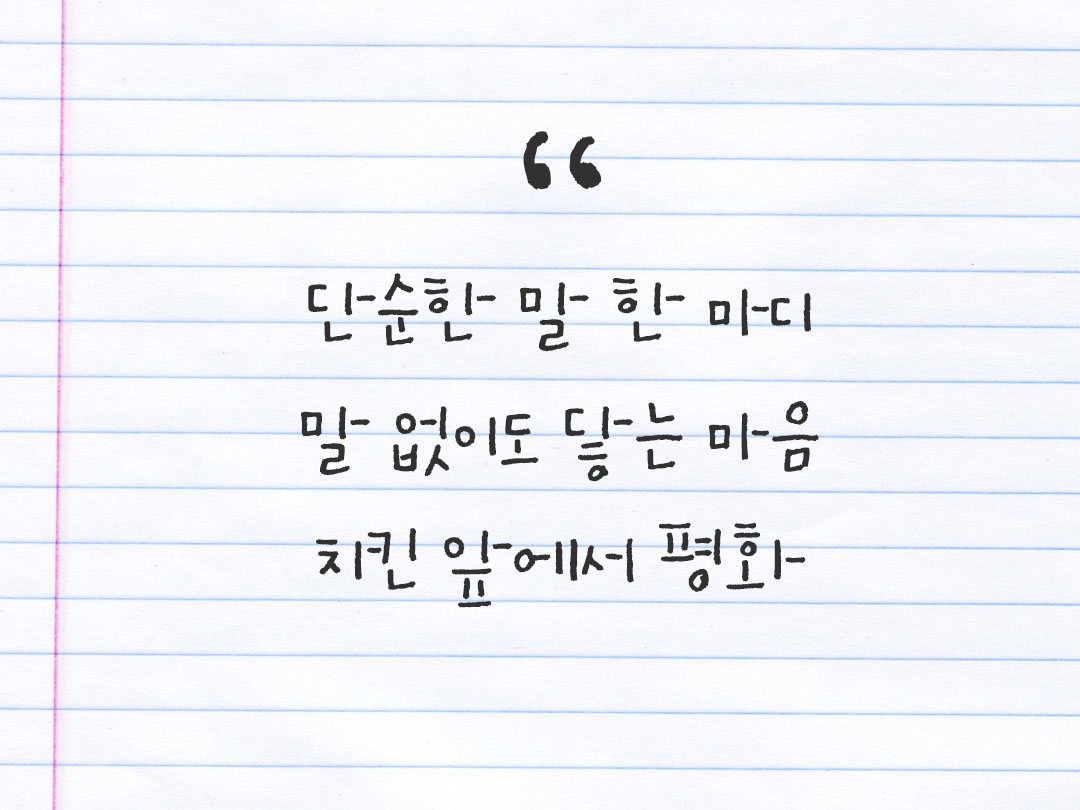 “
단순한 말 한 마디
말 없이도 닿는 마음
치킨 앞에서 평화